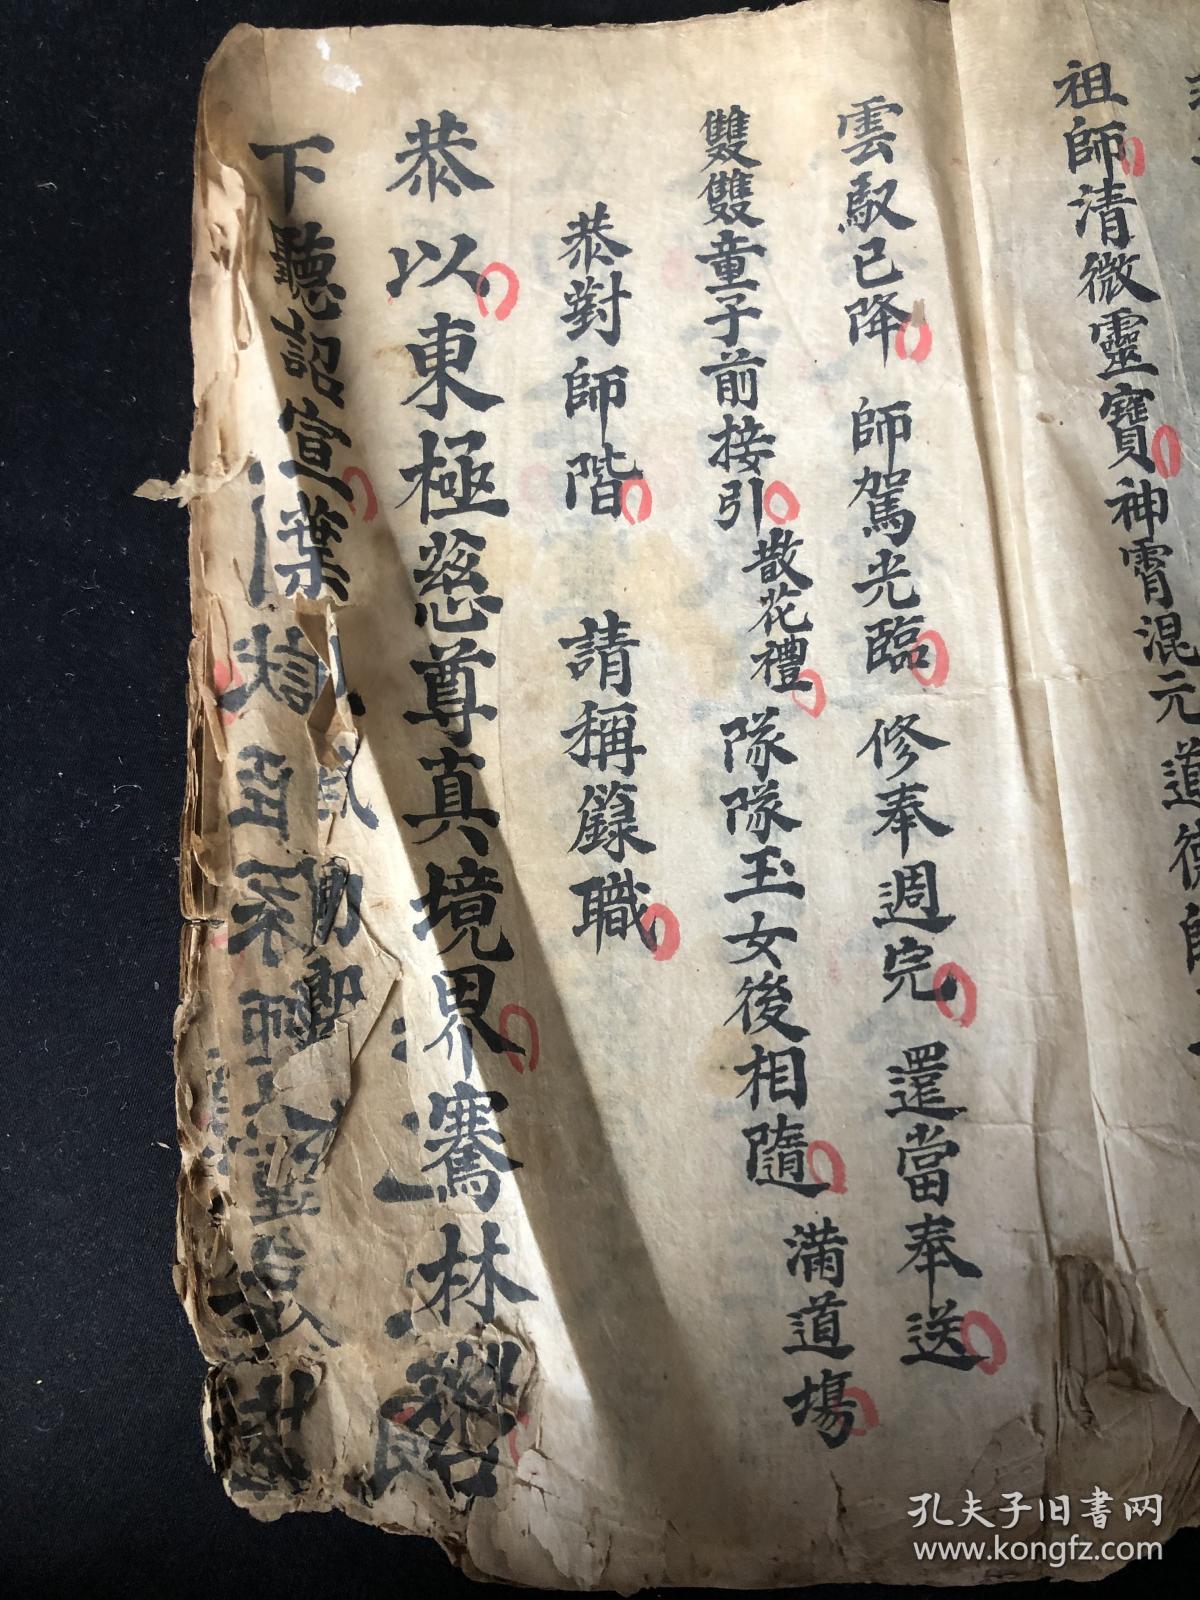 祖師清微靈寶神霄混元道德師
雲馭已降 師駕光臨 修奉週完 還當奉送
雙雙童子前接引散花禮隊隊玉女後相隨 滿道場
恭對師階 請稱籙職
恭以東極慈尊真境界騫林
下聽詔宣葉
孔夫子旧书网
www.kongfz.com